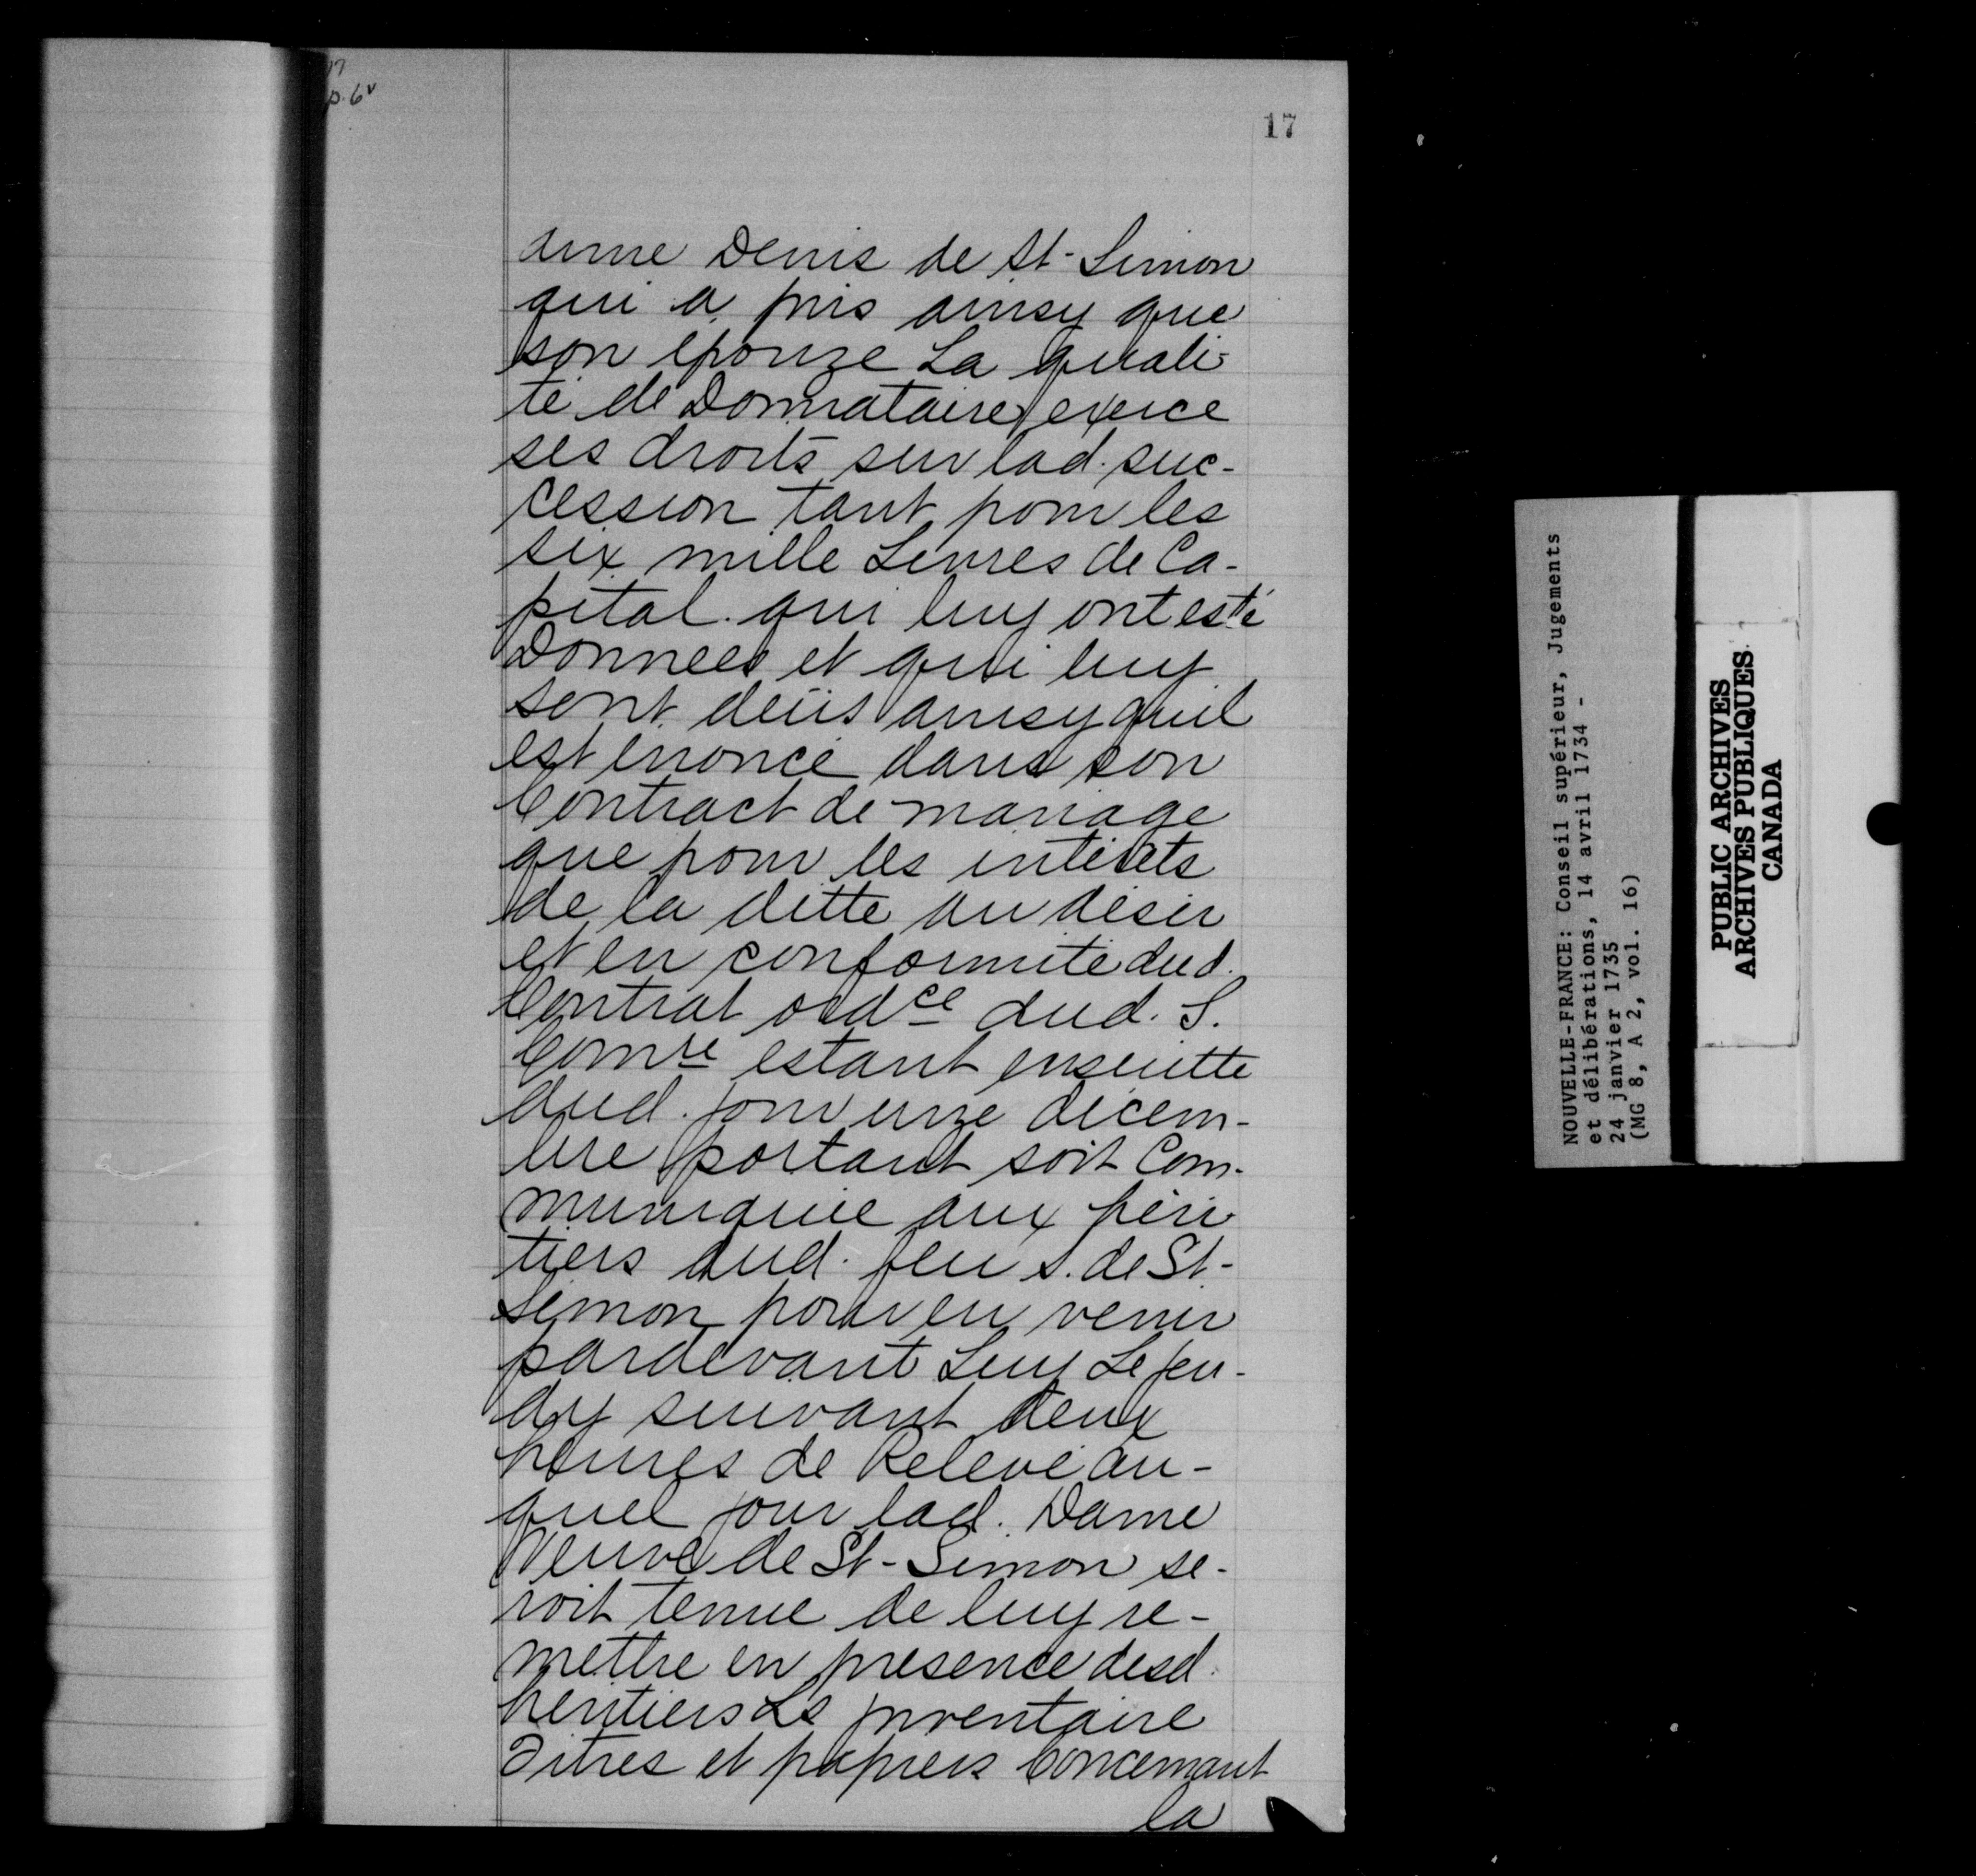 17
p. 6v
17
anne Denis de St-Simon
qui a pris ainsy que
son epouze La quali-
té de Donnataire exerce
ses droits sur lad. suc-
cession tant pour les
six mille Livres de Ca-
pital qui luy ont esté
Données et qui luy
sont deüs ainsy quil
est enoncé dans son
Contract de mariage
que pour les intérèts
de la ditte au désir
et en conformité dud.
Contrat ordce dud. S.
Comre estant ensuitte
dud. jour unze decem-
bre portant soit Com-
muniquée aux héri-
tiers dud. feu s. de St-
Simon pour en venir
pardevant Luy Le jeu-
dy suivant deux
heures de Relevé au-
quel jour lad. Dame
Veuve de St-Simon se-
roit tenue de luy re-
mettre en presence desd.
heritiers Ls inventaire
Titres et papiers Concernant
la
NOUVELLE-FRANCE: Conseil supérieur, Jugements
et délibérations, 14 avril 1734 -
24 janvier 1735
(MG 8, A 2, vol. 16)
PUBLIC ARCHIVES
ARCHIVES PUBLIQUES
CANADA